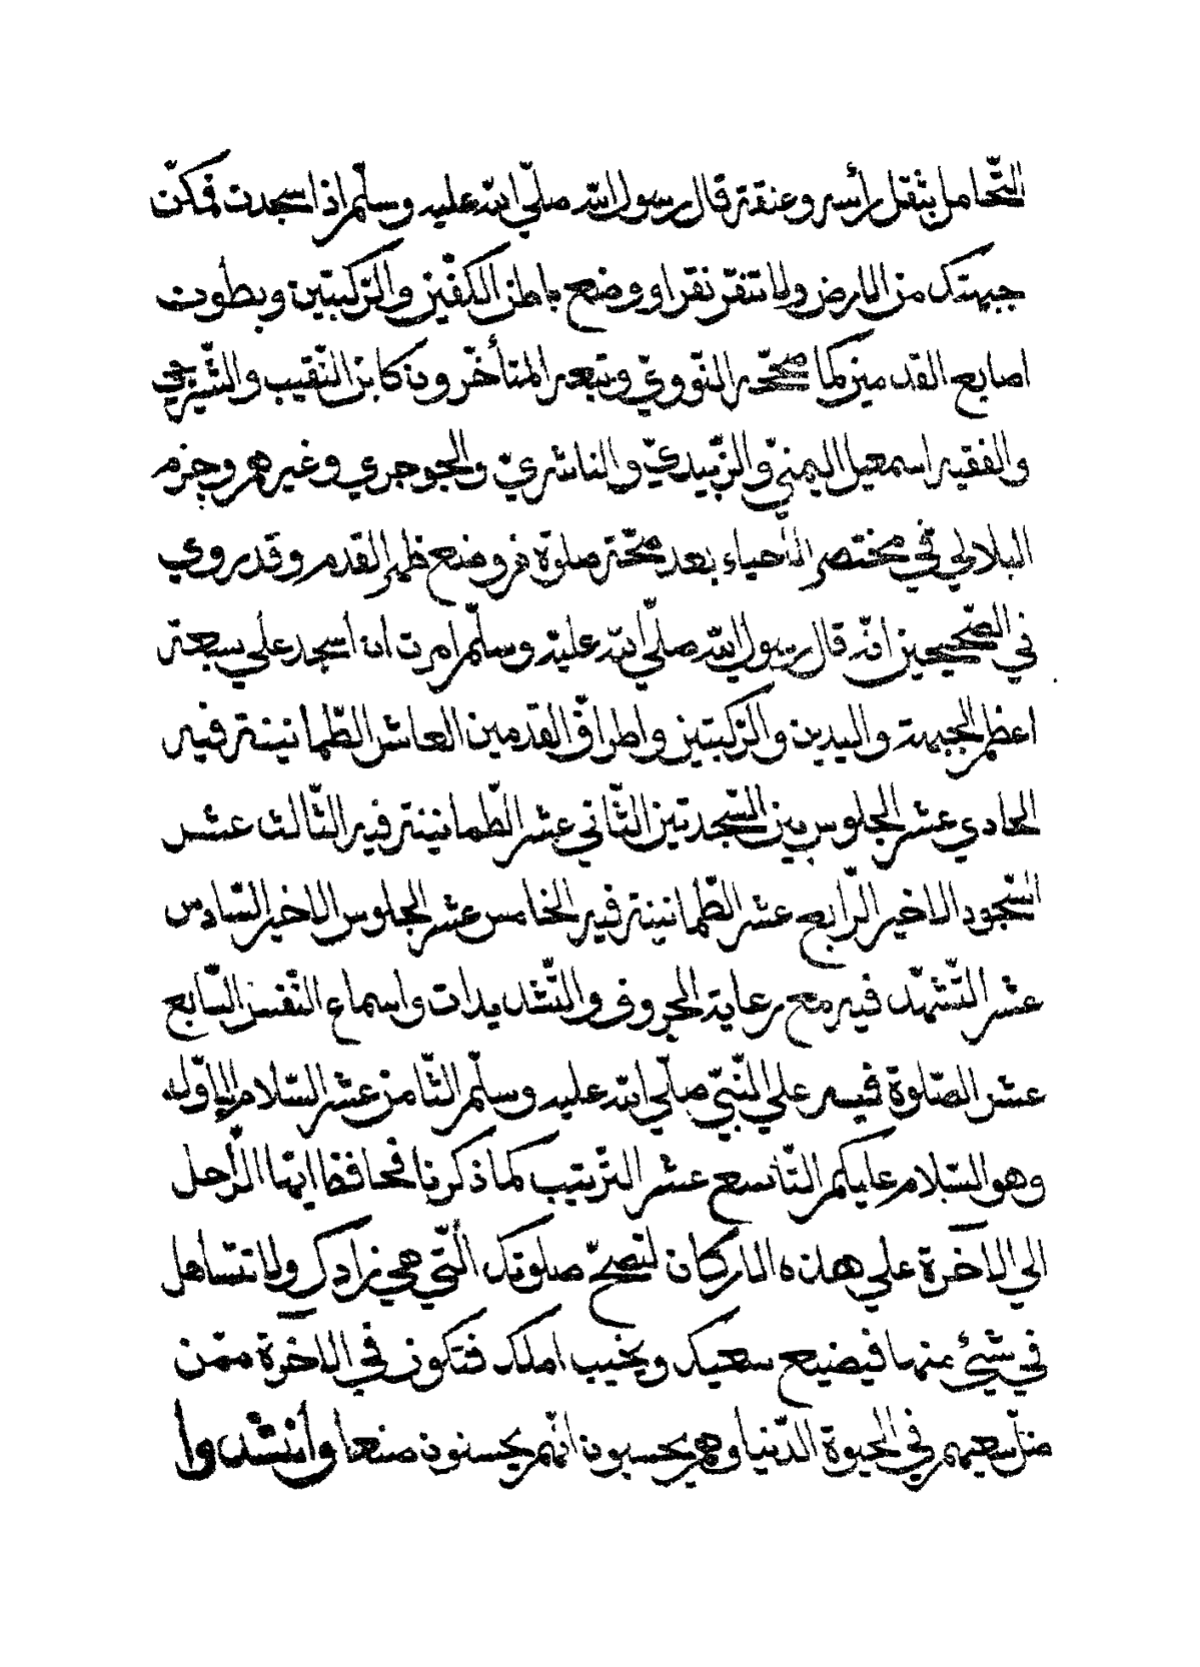 التّحامل بثقل رأسه وعنقه قال رسول الله صلّي الله عليه وسلّم اذا سجدت فمكّن
جبهتك من الارض ولا تنقر نقرا ووضع باطن الكفّين والرّكبتين وبطون
اصابع القدمين كما صحّحه النّوويّ وتبعه المتأخّرون كابن النّقيب والشّيرجي
والفقيه اسمعيل اليمنيّ والزّبيديّ والناشريّ والجوجري وغيرهم وجزم
البلالي في مختصر الاحياء بعد صحّة صلوة فوضع ظهر القدم وقد روي
في الصّحيحين انّه قال رسول الله صلّي الله عليه وسلّم امرت ان اسجد علي سبعة
اعظم الجبهة واليدين والرّكبتين واطراف القدمين العاشر الطّمانينة فيه
الحادي عشر الجلوس بين السّجدتين الثّاني عشر الطّمانينة فيه الثّالث عشر
السّجود الاخير الرّابع عشر الطّمانينة فيه الخامس عشر الجلوس الاخير السّادس
عشر التّشهّد فيه مع رعاية الحروف والتّشديدات واسماع النّفس السّابع
عشر الصّلوة فيه علي النّبيّ صلّي الله عليه وسلّم الثّامن عشر السّلام الاوّل
وهو السّلام عليكم التّاسع عشر التّرتيب كما ذكرنا فحافظ ايّها الرّاحل
الي الآخرة علي هذه الاركان لتصحّ صلوتك الّتي هي زادك ولا تتساهل
في شيئ منها فيضيع سعيك ويخيب املك فتكون في الآخرة ممّن
ضلّ سعيهم في الحيوة الدّنيا وهم يحسبون انّهم يحسنون صنعا وأنشدوا